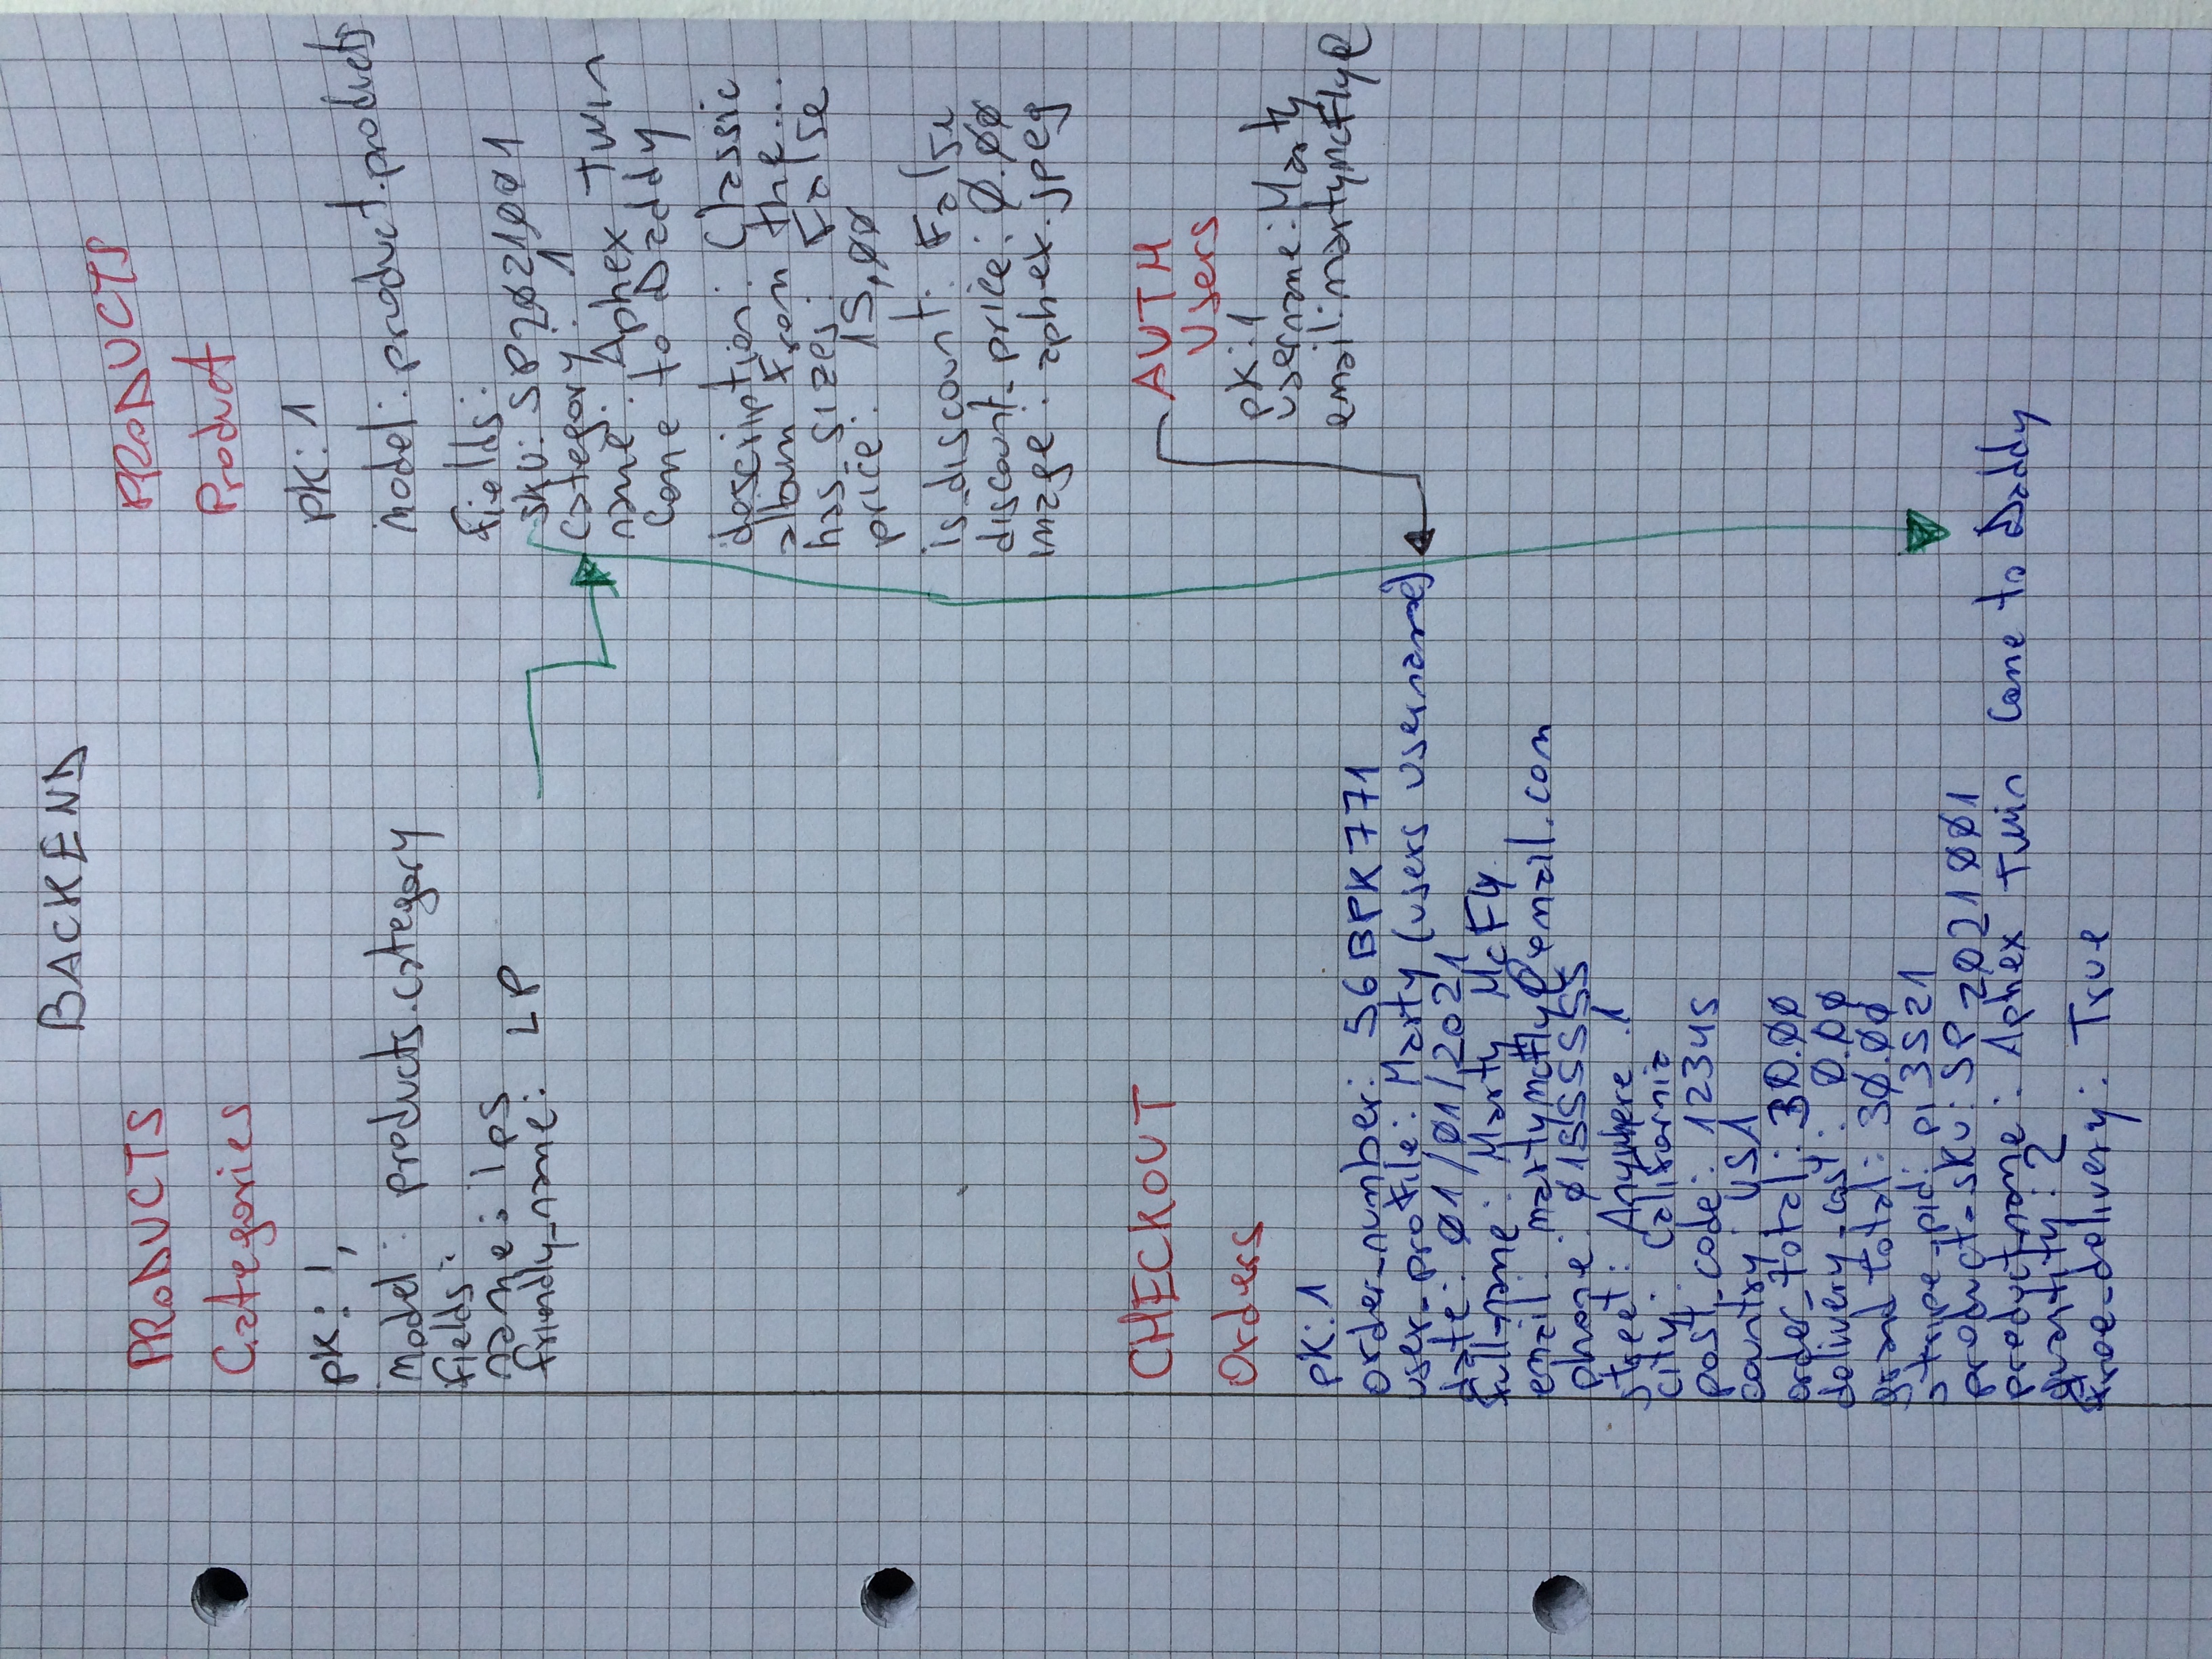 BACKEND
PRODUCTS
Categories
pk: 1,
model: products.category
fields:
name: lps
friendly_name: LP
PRODUCTS
Product
pk: 1
model: product.products
fields:
sku: SP2021001
category: 1
name: Aphex Twin
Come to Daddy
description: Classic
album from the...
has_sizes: False
price: 15,00
is_discount: False
discount_price: 0.00
image: aphex.jpeg
CHECKOUT
Orders
pk: 1
order_number: 56BPK771
user_profile: Marty (users username)
date: 01/01/2021
full-name: Marty McFly
email: martymcfly@email.com
phone: 01555555
street: Anywhere 1
city: California
post_code: 12345
country: USA
order_total: 30.00
delivery_cost: 0.00
grand total: 30.00
stripe_pid: pi3521
product_sku: SP2021001
productname: Aphex Twin Come to Daddy
quantity: 2
free_delivery: True
AUTH
Users
pk: 1
username: Marty
email: martymcfly@